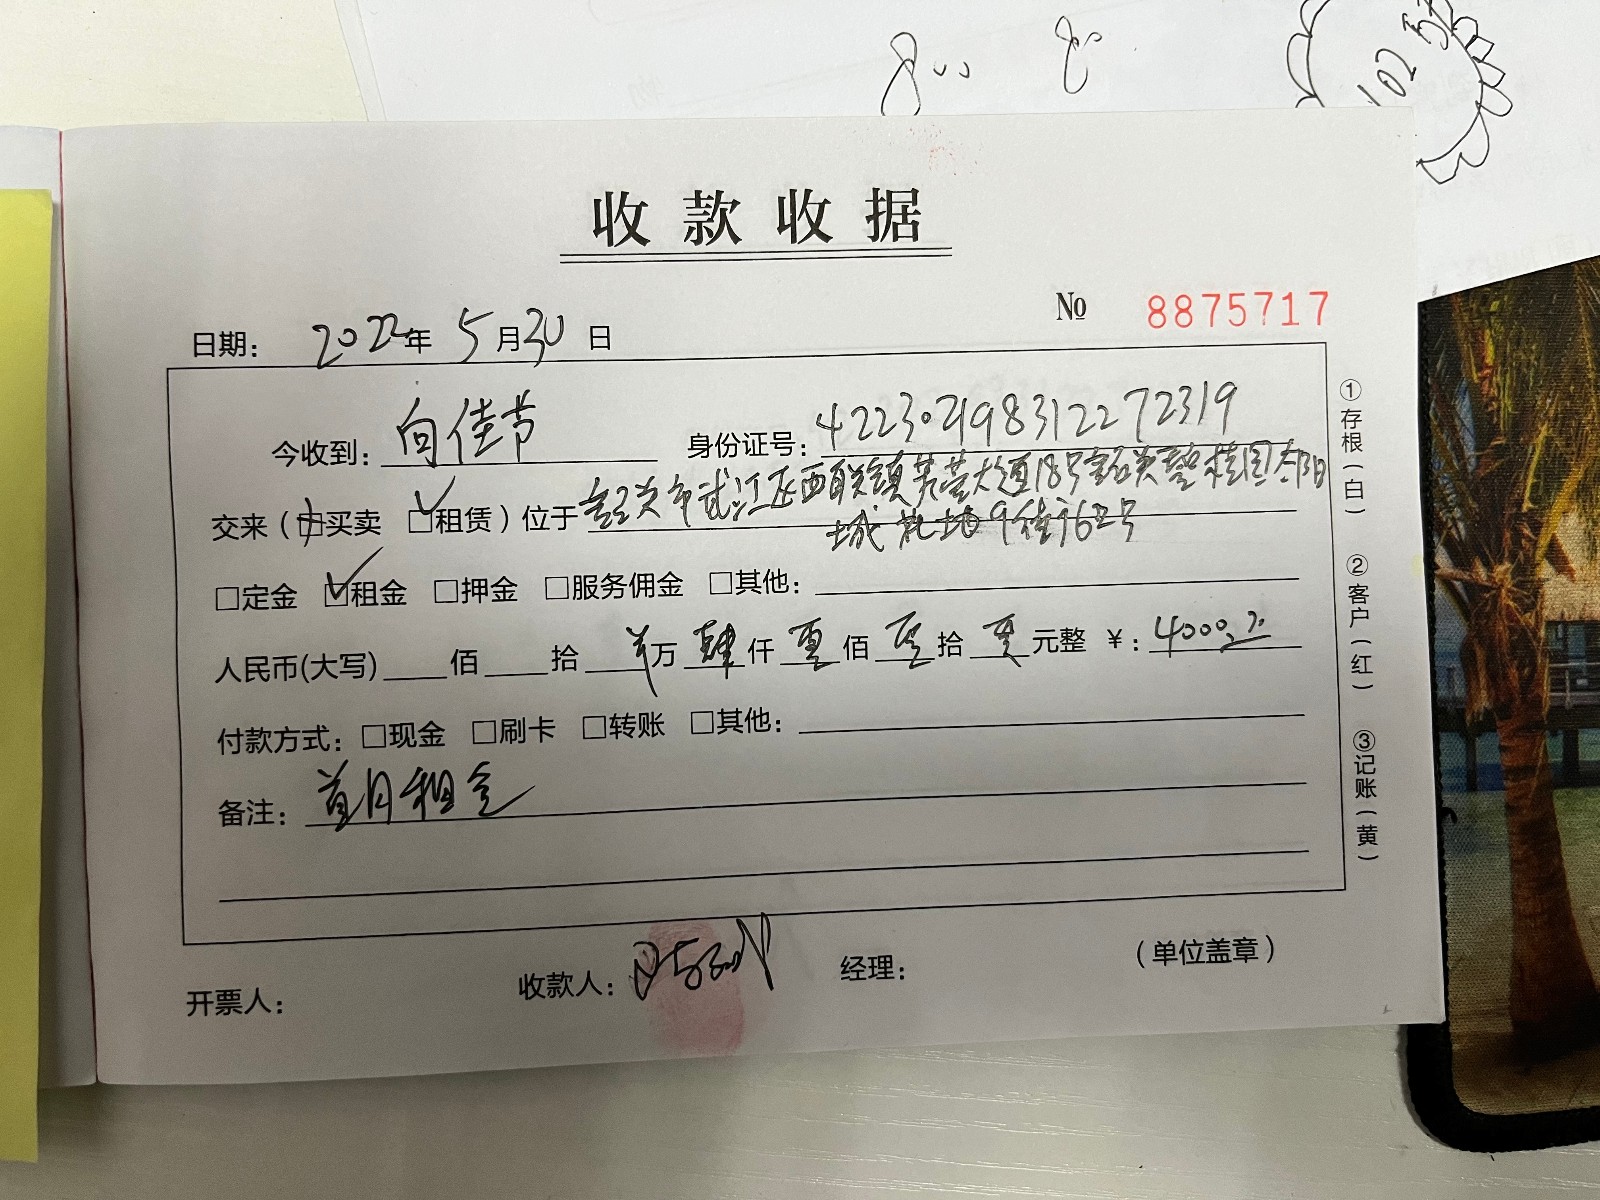 102
收款收据
№ 8875717
日期： 2022年 5月30日
今收到： 向佳节 身份证号： 422302198312272319
交来（□买卖 ☑租赁）位于 韶关市武江区西联镇芙蓉大道18号韶关碧桂园太阳
城花地9街96号
□定金 ☑租金 □押金 □服务佣金 □其他：
人民币(大写) 佰 拾 ¥万 肆仟 零佰 零拾 零元整 ¥： 4000.00
付款方式：□现金 □刷卡 □转账 □其他：
备注： 首月租金
开票人： 收款人： 经理： （单位盖章）
①存根（白） ②客户（红） ③记账（黄）